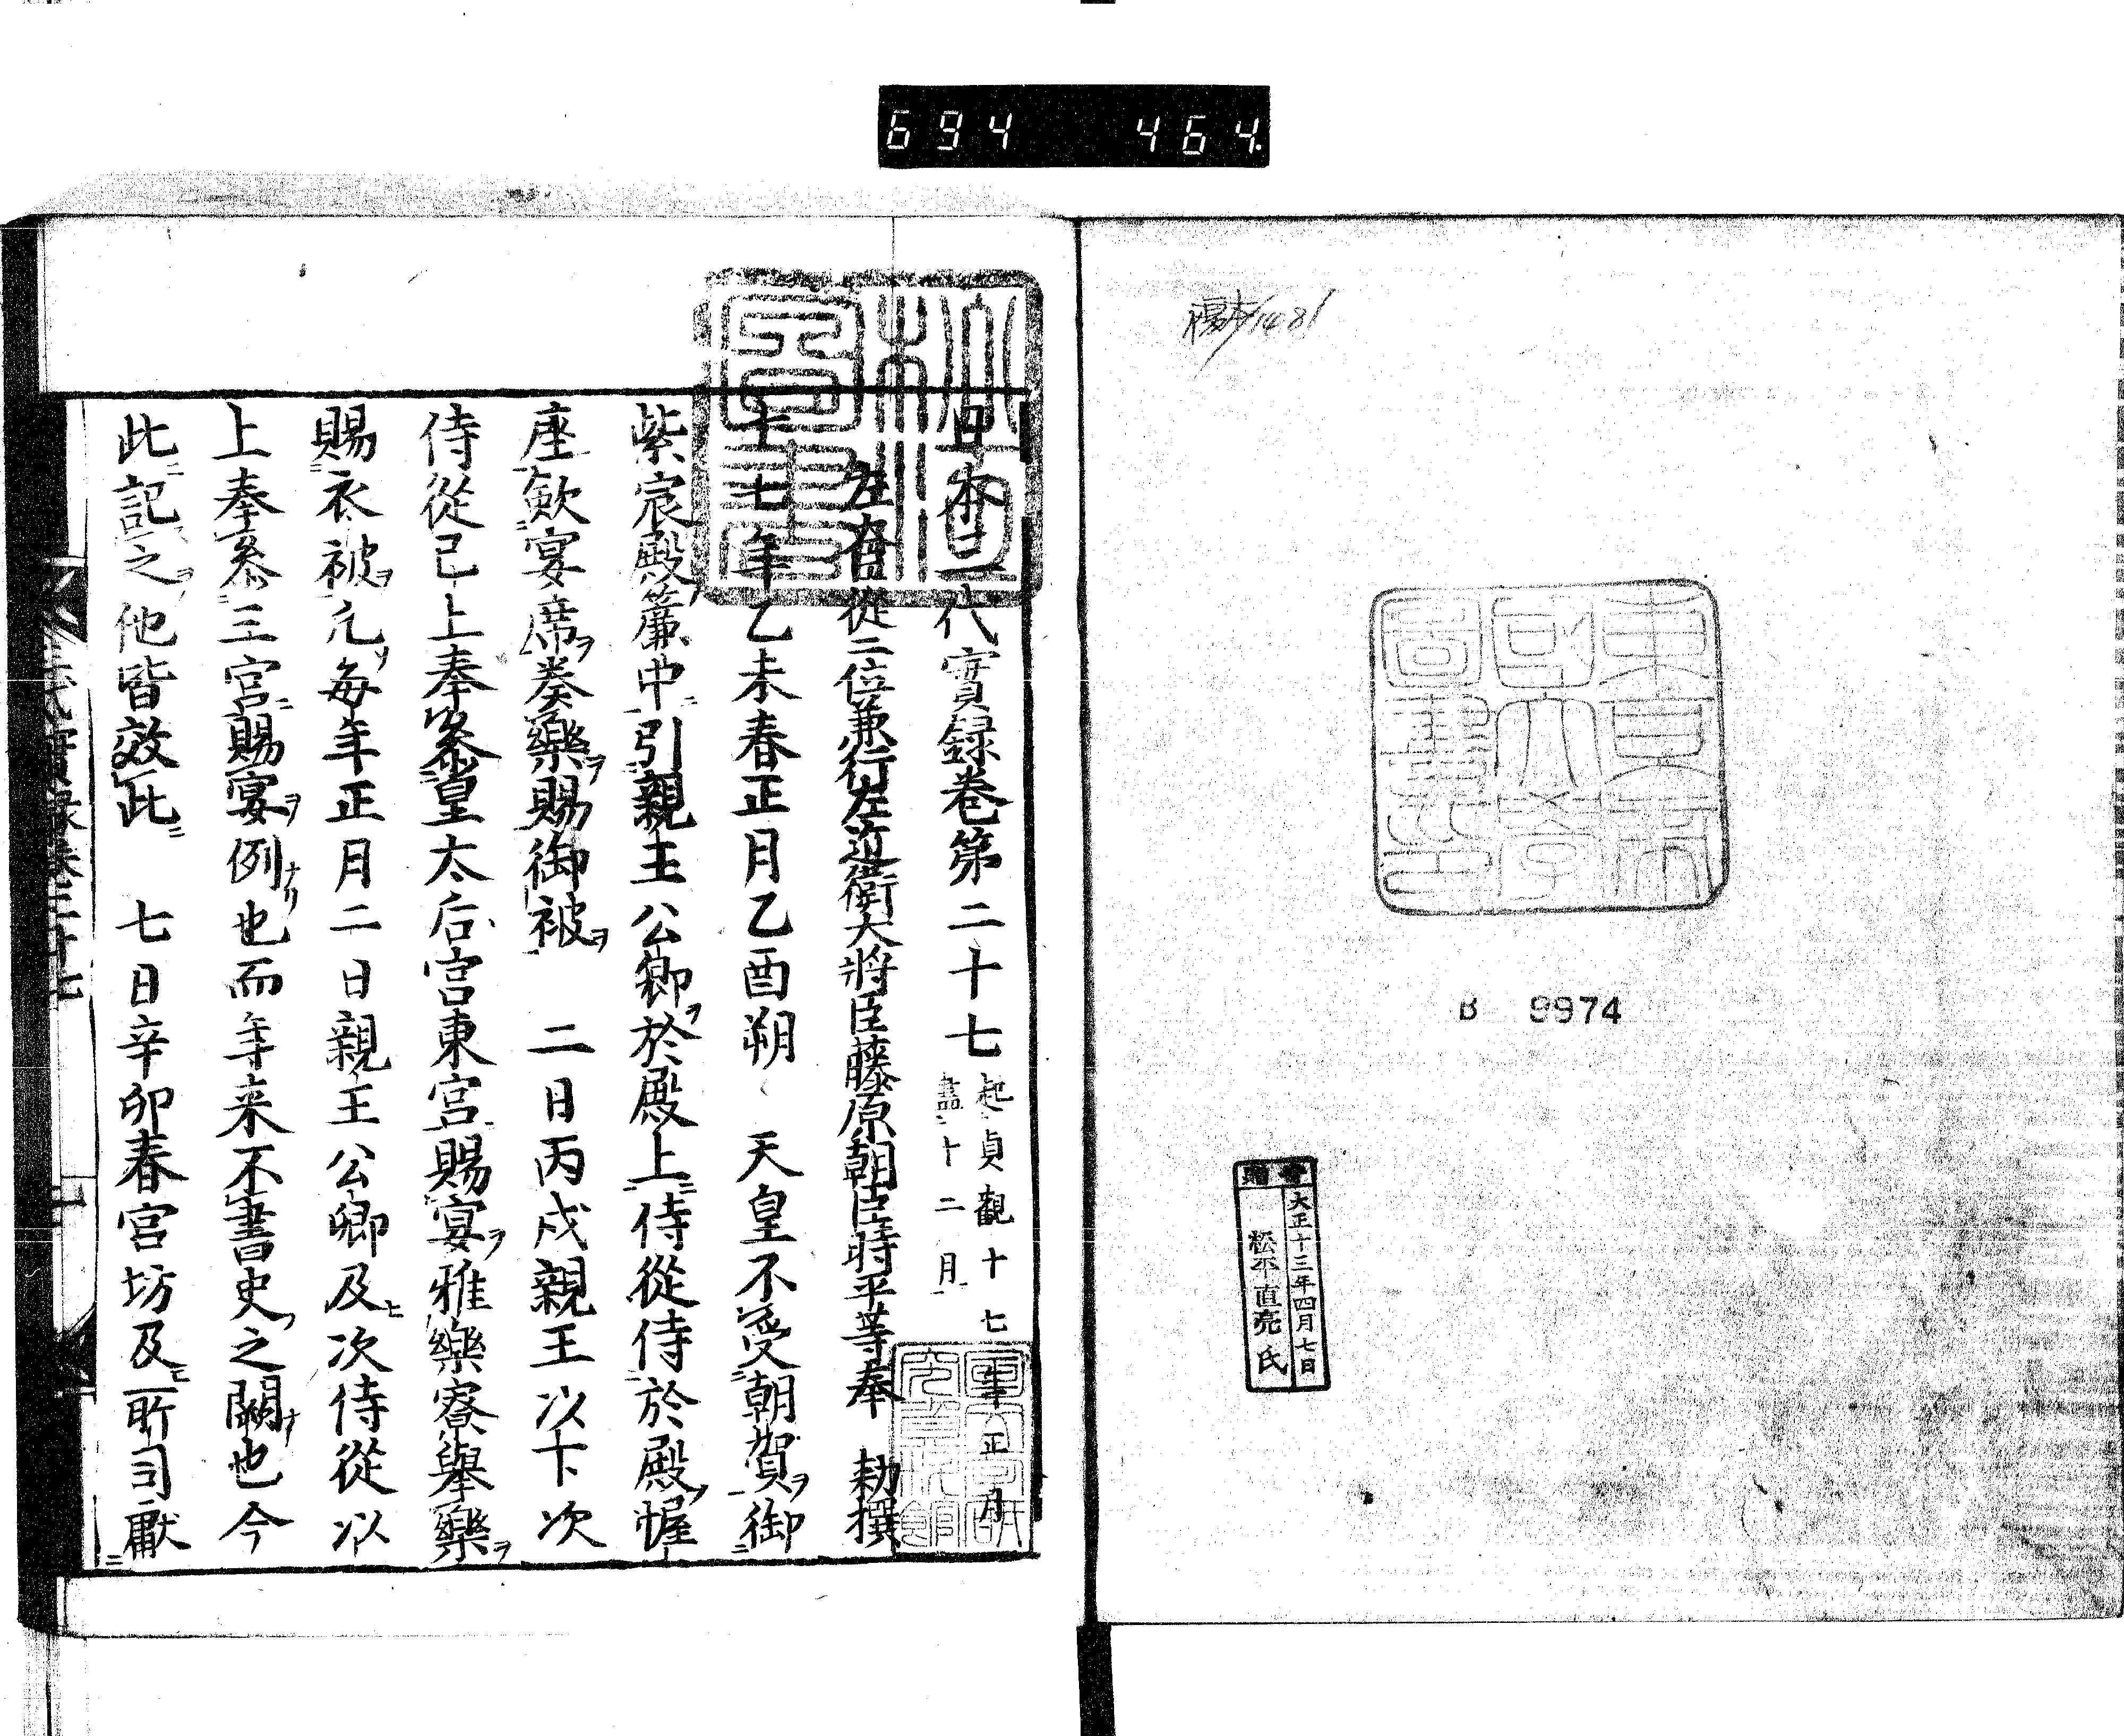 694 464.
B 9974
東京帝國大學圖書印
寄贈
大正十三年四月七日
松平直亮氏
日本三代實録卷第二十七 起貞觀十七年正月
盡十二月
左大臣從二位兼行左近衛大將臣藤原朝臣時平等奉 勅撰
十七年乙未春正月乙酉朔 天皇不受朝賀ヲ御
紫宸殿簾中ニ引親王公卿ヲ於殿上ニ侍從侍於殿幄
座歟宴席ヲ奏樂ヲ賜御被ヲ 二日丙戌親王以下次
侍從已上奉參皇太后宮東宮賜宴ヲ雅樂寮擧樂ヲ
賜衣被ヲ凢ソ每年正月二日親王公卿及ヒ次侍從以
上奉參三宮賜宴ヲ例ナリ也而年来不書史之闕也今
此記之ヲ他皆效此ニ 七日辛卯春宮坊及ヒ所司獻
三代實録卷二十七